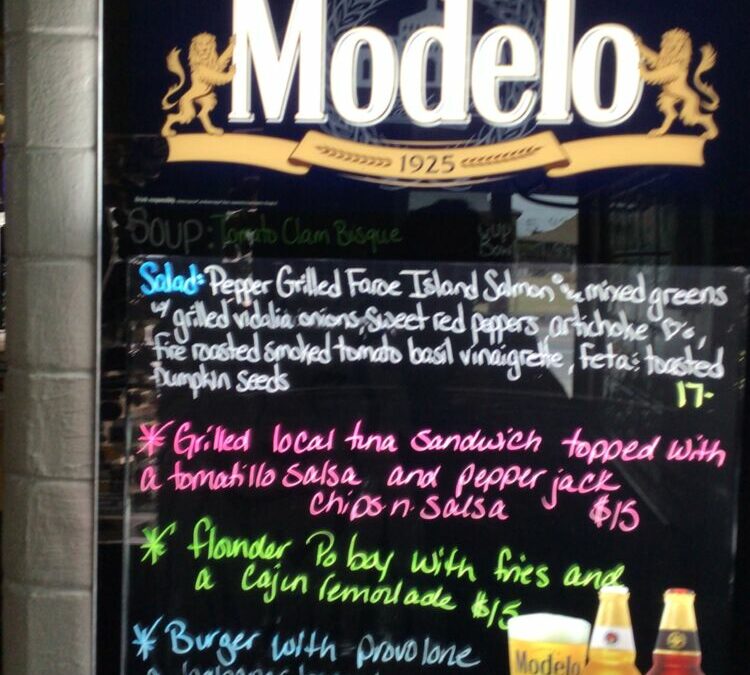 Modelo
1925
SOUP: Tomato Clam Bisque
Cup
Bowl
Salad: Pepper Grilled Faroe Island Salmon mixed greens
w/ grilled vidalia onions, Sweet red peppers, artichoke ♡'s,
fire roasted smoked tomato basil vinaigrette, Feta & toasted
Pumpkin Seeds
17-
* Grilled local tuna sandwich topped with
a tomatillo salsa and pepper jack
chips n salsa $15
* flounder Po boy with fries and
a cajun remoulade $15
* Burger with provolone
Modelo